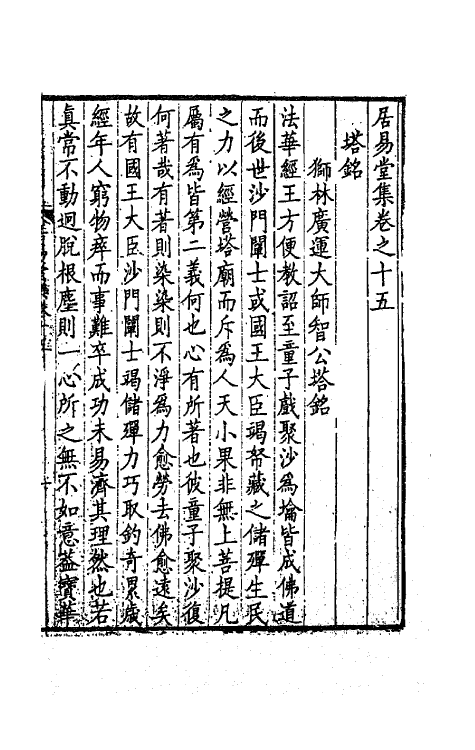 居易堂集卷之十五
塔銘
獅林廣運大師智公塔銘
法華經王方便教詔至童子戲聚沙為塔皆成佛道
而後世沙門闡士或國王大臣竭帑藏之儲殫生民
之力以經營塔廟而斥為人天小果非無上菩提凡
屬有為皆第二義何也心有所著也彼童子聚沙復
何著哉有著則染染則不淨為力愈勞去佛愈遠矣
故有國王大臣沙門闡士竭儲殫力巧取釣奇累歲
經年人窮物瘁而事難卒成功未易濟其理然也若
真常不動迥脫根塵則一心所之無不如意葢寶華